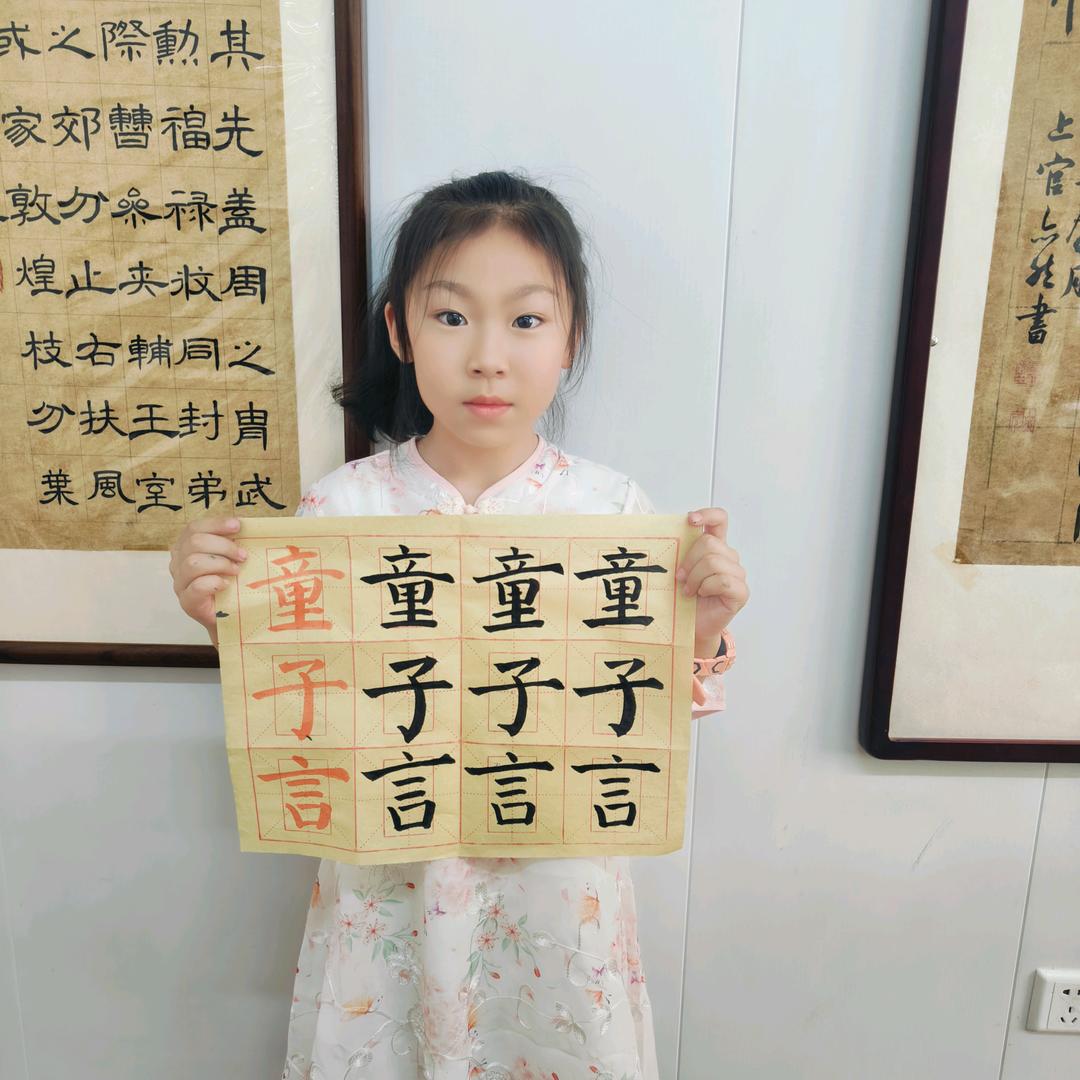 其先蓋周之胄武
勳福禄攸同封弟
際曹參夾輔王室
之郊分止右扶風
或家敦煌枝分葉
童子言
童子言
童子言
童子言
上官亦然書